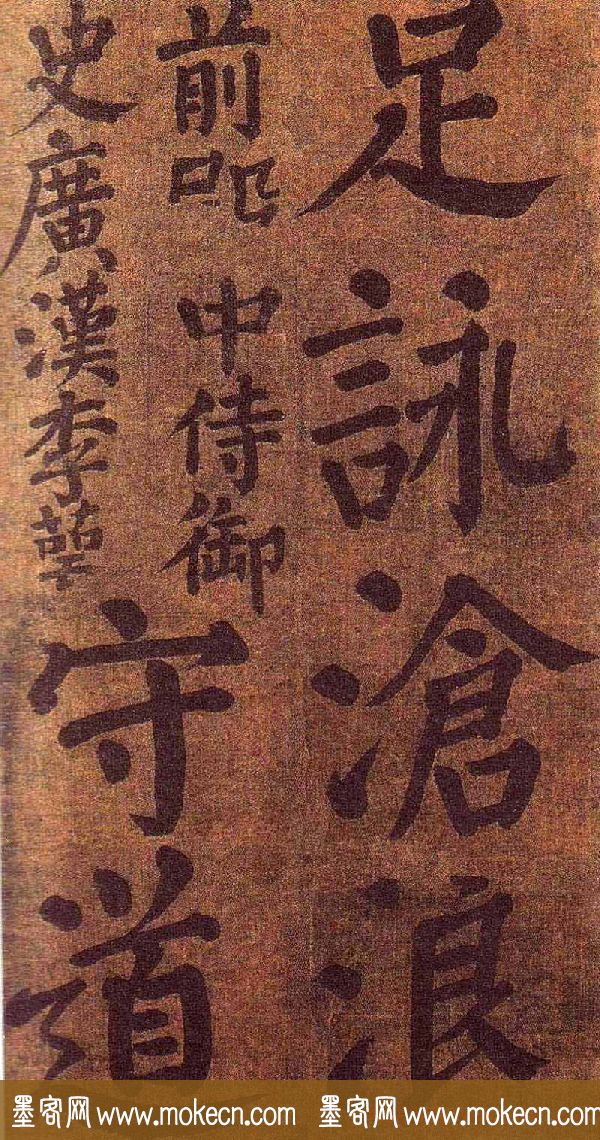 足詠滄浪
前 中侍御
史廣漢李萼
守道
墨客网 www.mokecn.com 墨客网 www.mokecn.com